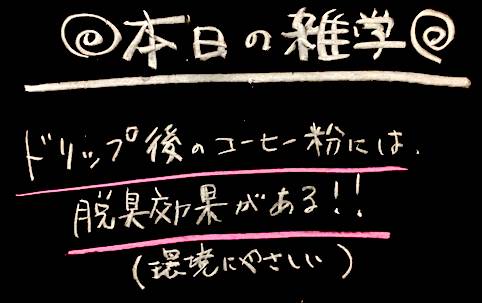 本日の雑学
ドリップ後のコーヒー粉には、
脱臭効果がある!!
(環境にやさしい)